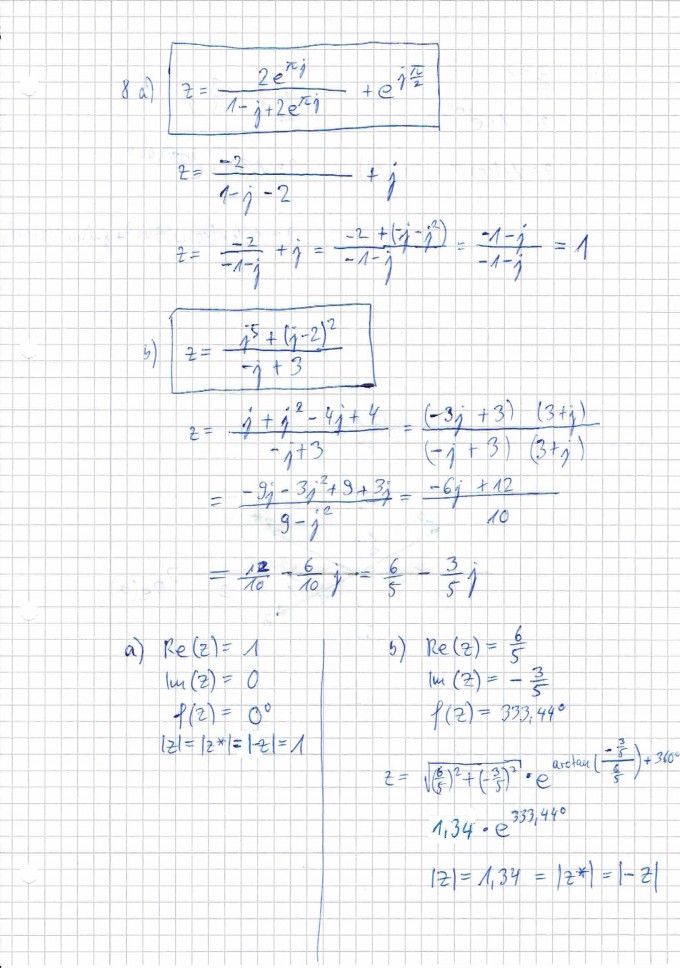 8 a) z = 2e^{πj} / (1-j+2e^{πj}) + e^{j π/2}
z = -2 / (1-j-2) + j
z = -2 / (-1-j) + j = (-2+(-j-j²)) / (-1-j) = (-1-j) / (-1-j) = 1
b) z = (j⁵+(j-2)²) / (-j+3)
z = (j+j²-4j+4) / (-j+3) = (-3j+3) (3+j) / (-j+3) (3+j)
= (-9j-3j²+9+3j) / (9-j²) = (-6j+12) / 10
= 12/10 - 6/10 j = 6/5 - 3/5 j
a) Re(z) = 1
Im(z) = 0
φ(z) = 0°
|z|=|z*|=|-z|=1
b) Re(z) = 6/5
Im(z) = - 3/5
φ(z) = 333,44°
z = √((6/5)²+(-3/5)²) · e^{arctan((-3/5)/(6/5))+360°}
1,34 · e^{333,44°}
|z| = 1,34 = |z*| = |-z|